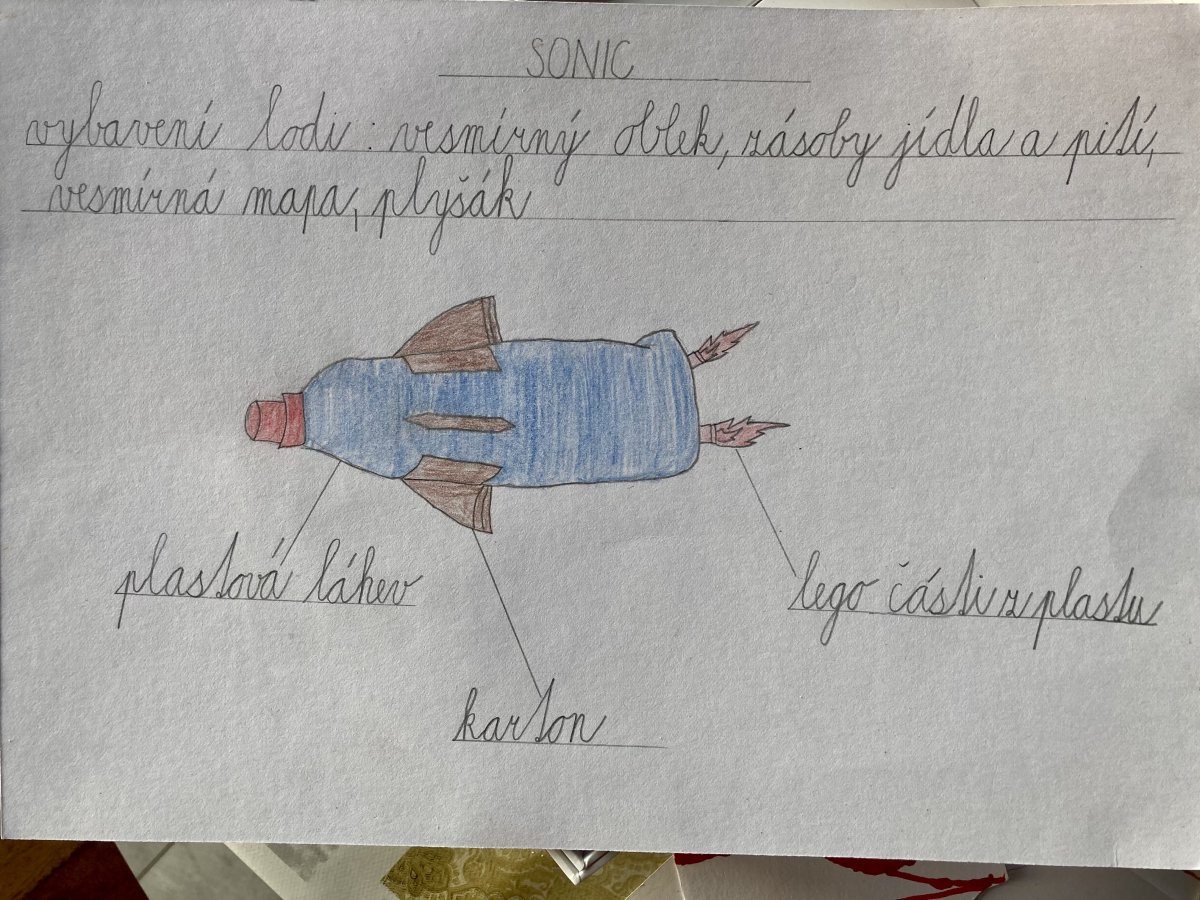 SONIC
vybavení lodi : vesmírný oblek, zásoby jídla a pití,
vesmírná mapa, plyšák
plastová láhev
lego části z plastu
karton